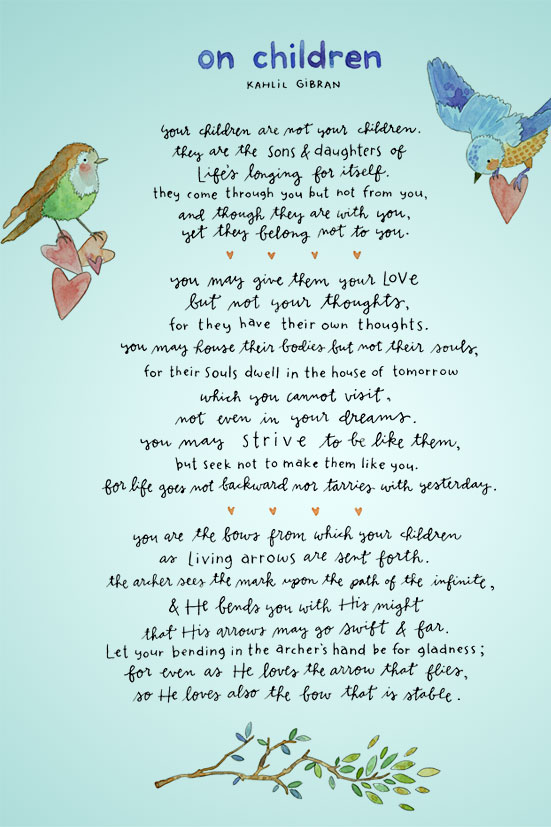 on children
KAHLIL GIBRAN
your children are not your children.
they are the sons & daughters of
Life's longing for itself.
they come through you but not from you,
and though they are with you,
yet they belong not to you.
you may give them your Love
but not your thoughts,
for they have their own thoughts.
you may house their bodies but not their souls,
for their souls dwell in the house of tomorrow
which you cannot visit,
not even in your dreams.
you may strive to be like them,
but seek not to make them like you.
for life goes not backward nor tarries with yesterday.
you are the bows from which your children
as Living arrows are sent forth.
the archer sees the mark upon the path of the infinite,
& He bends you with His might
that His arrows may go swift & far.
Let your bending in the archer's hand be for gladness;
for even as He loves the arrow that flies,
so He loves also the bow that is stable.